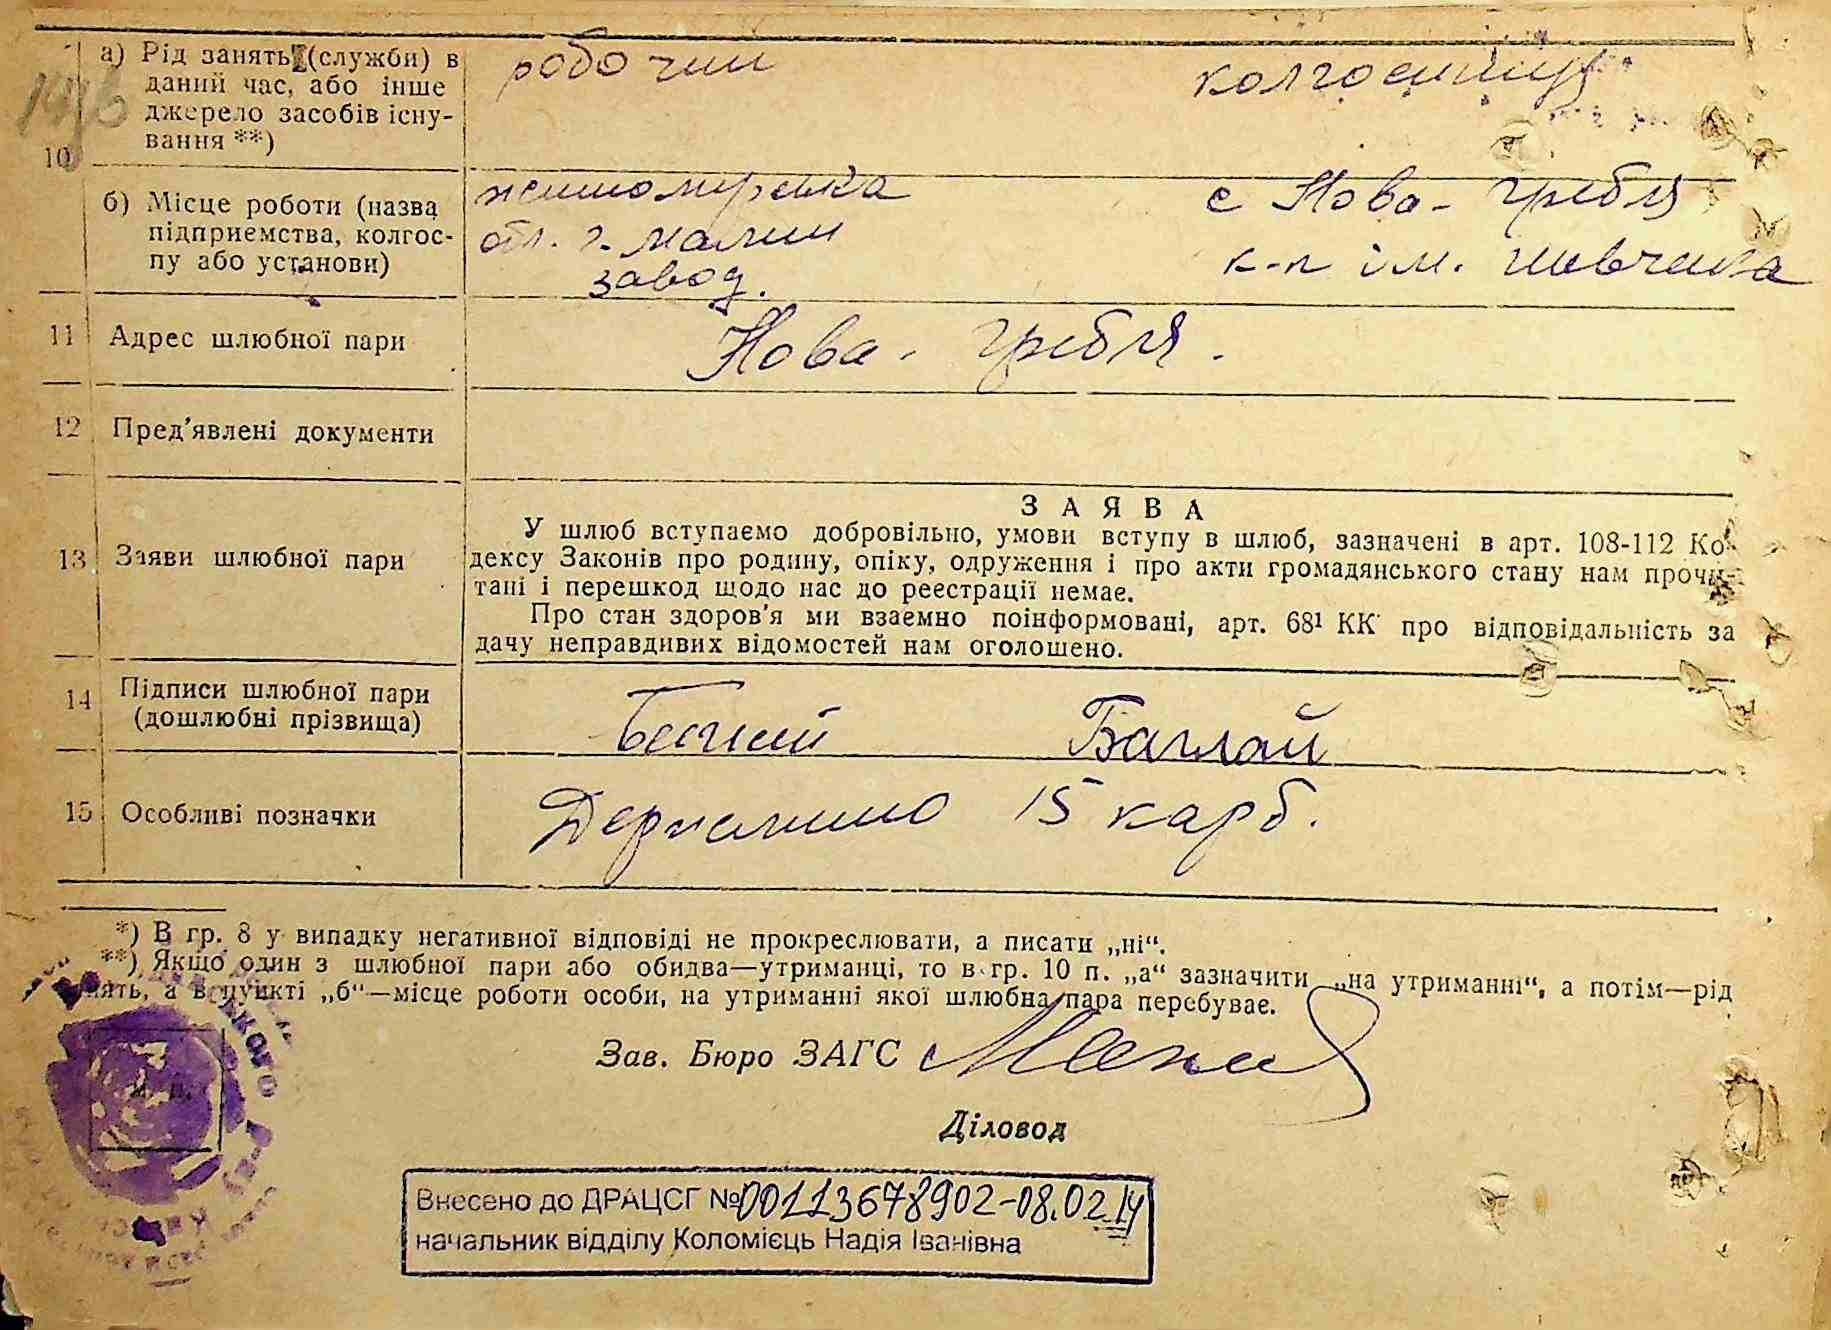 а) Рід занять (служби) в
даний час, або інше
джерело засобів існу-
вання **)
робочий
колгоспниця
10
б) Місце роботи (назва
підприємства, колгос-
пу або установи)
житомирська
обл. г. малин
завод.
с Нова-гребля
к-п ім. шевченка
11 Адрес шлюбної пари
Нова-гребля.
12 Пред'явлені документи
ЗАЯВА
13 Заяви шлюбної пари
У шлюб вступаємо добровільно, умови вступу в шлюб, зазначені в арт. 108-112 Ко-
дексу Законів про родину, опіку, одруження і про акти громадянського стану нам прочи-
тані і перешкод щодо нас до реєстрації немає.
Про стан здоров'я ми взаємно поінформовані, арт. 68¹ КК про відповідальність за
дачу неправдивих відомостей нам оголошено.
14 Підписи шлюбної пари
(дошлюбні прізвища)
Баглай
15 Особливі позначки
Держмито 15 карб.
*) В гр. 8 у випадку негативної відповіді не прокреслювати, а писати „ні“.
**) Якщо один з шлюбної пари або обидва—утриманці, то в гр. 10 п. „а“ зазначити „на утриманні“, а потім—рід
занять, а в пункті „б“—місце роботи особи, на утриманні якої шлюбна пара перебуває.
Зав. Бюро ЗАГС
Діловод
М. П.
Внесено до ДРАЦСГ №00113678902-08.02.14
начальник відділу Коломієць Надія Іванівна